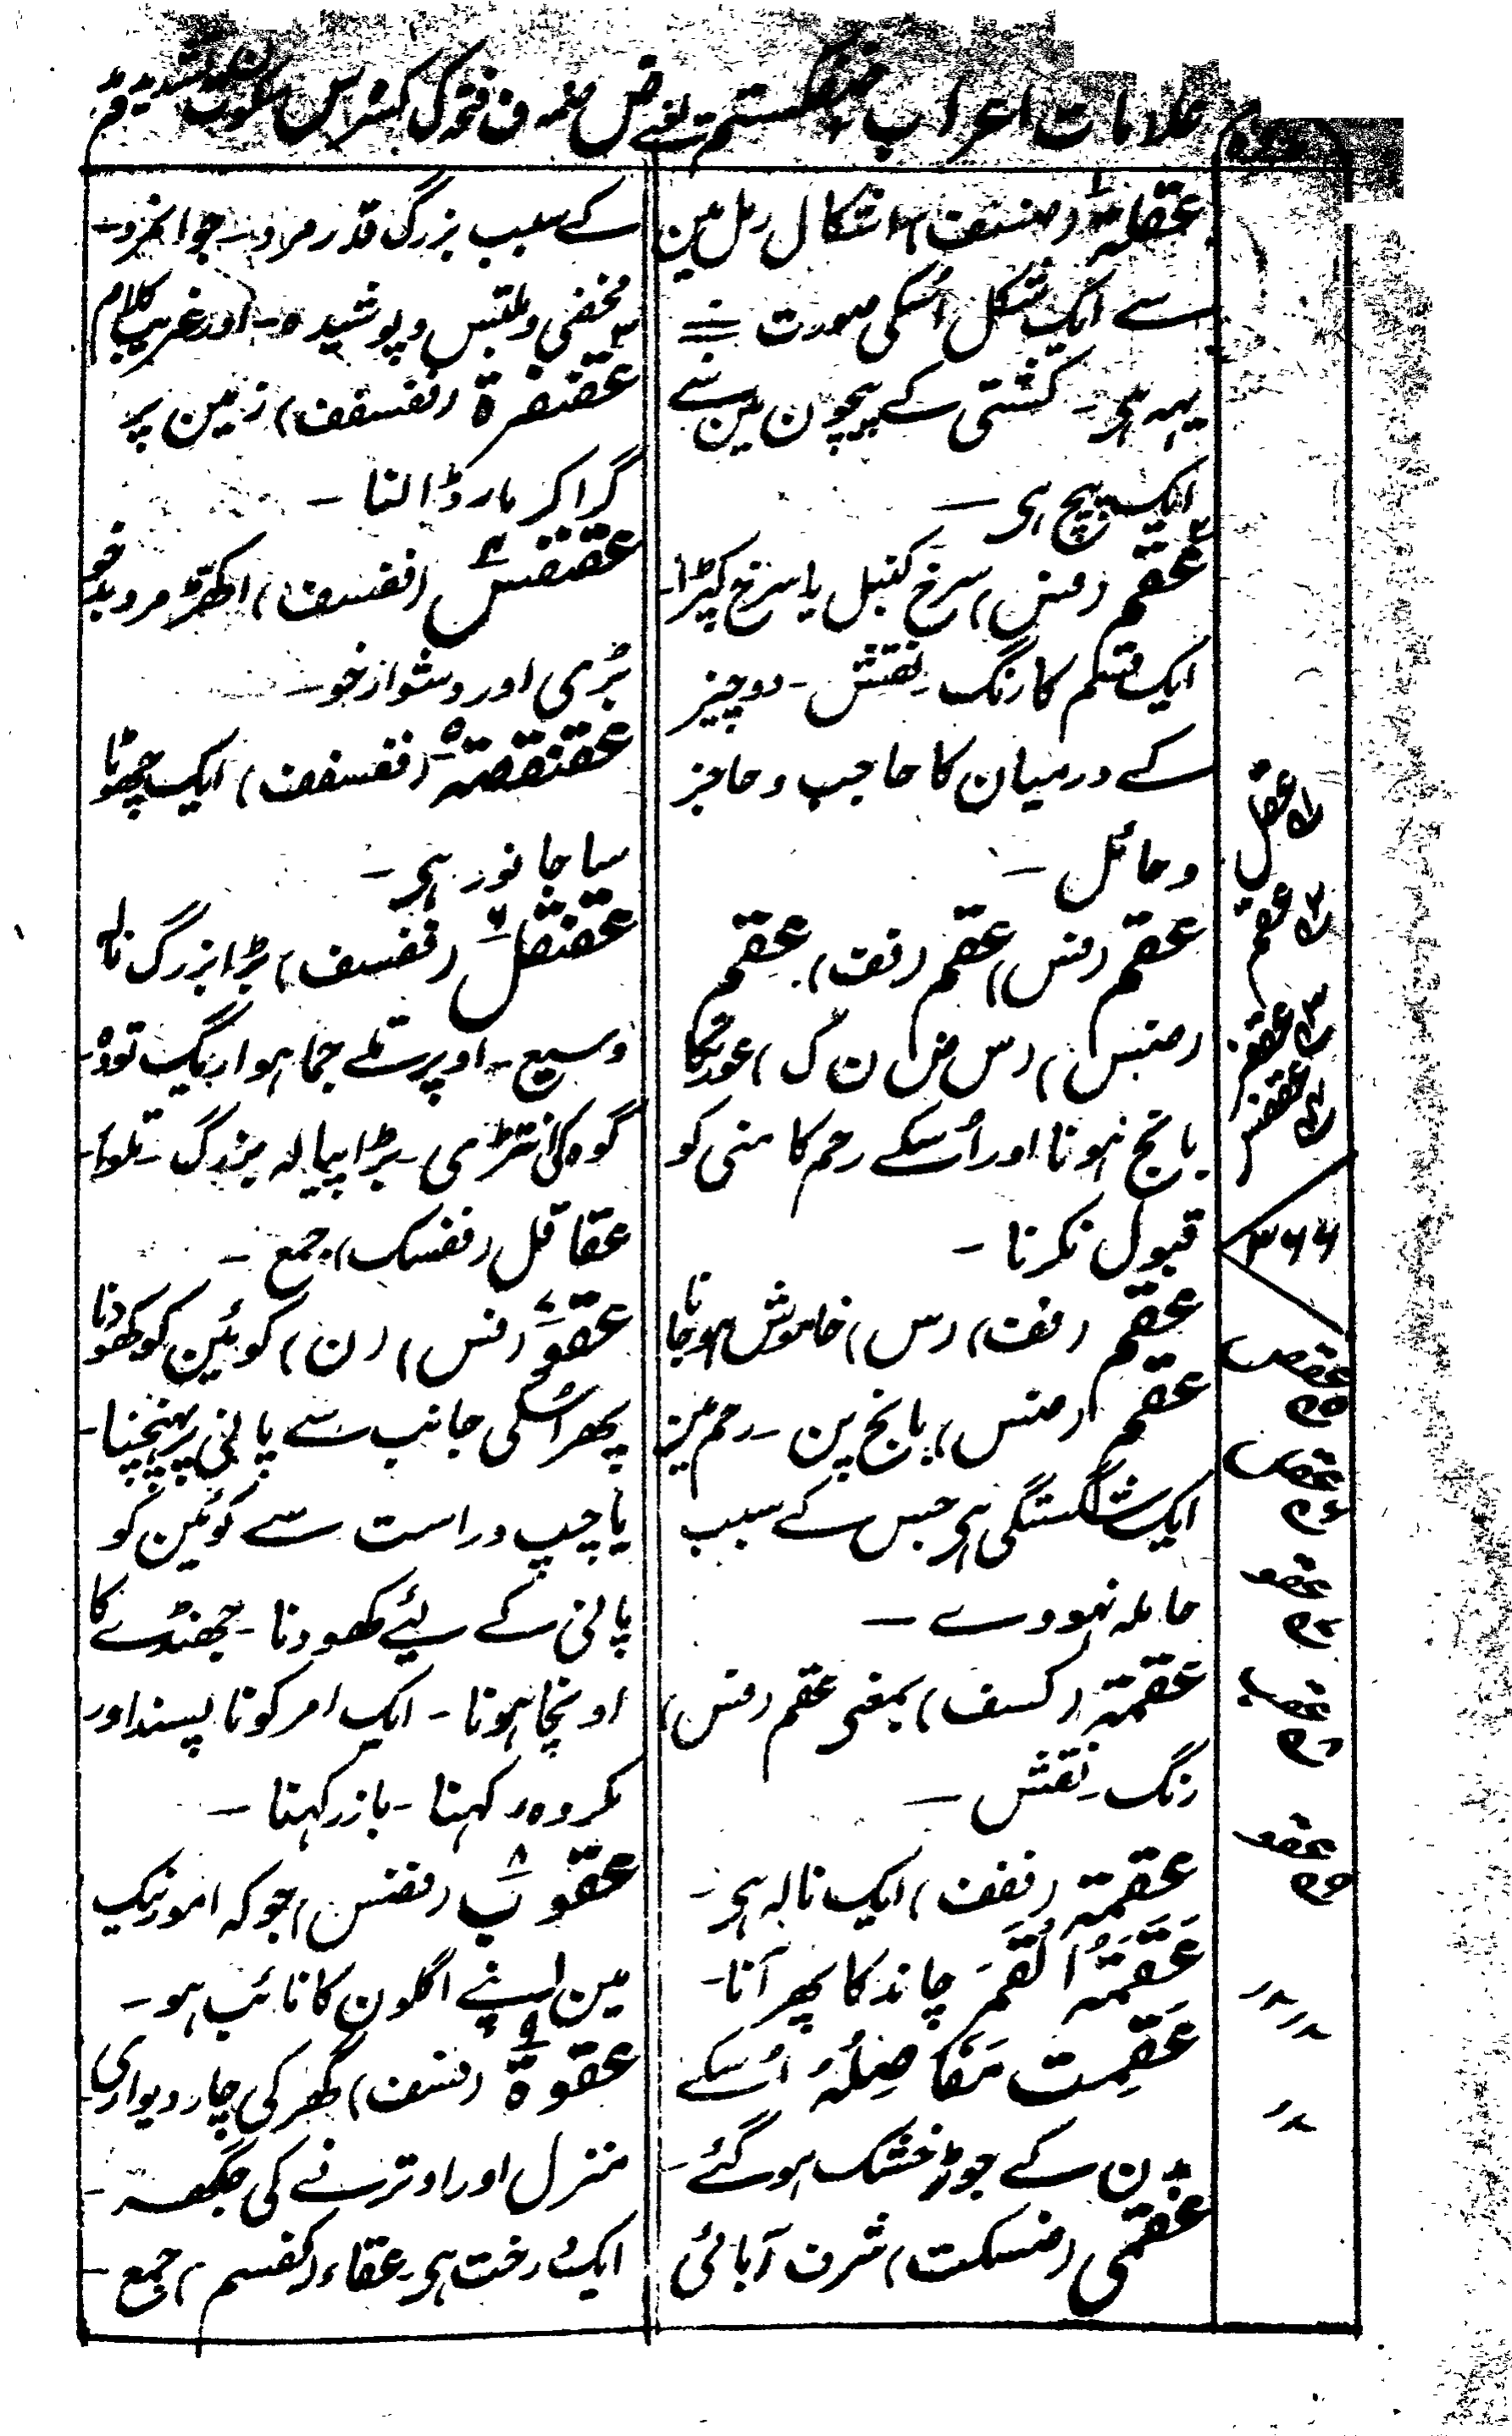 علامات اعراب ض ضمہ ف فتحہ ک کسرہ س سکون
عقلۃ (ضسف) اشکال رمل مین
سے ایک شکل اُسکی صورت
یہہ ہی۔ کشتی کے پیچون مین سے
ایک پیچ ہی —
عقم (فس) سرخ کنبل یا سرخ کپڑا۔
ایک قسم کا رنگ۔ نقش۔ دو چیز
کے درمیان کا حاجب و حاجز
و حائل —
عقم (فس) عقم (فف) عقم
(ضس) (س ض ن ک) عورتکا
بانج ہونا اور اُسکے رحم کا منی کو
قبول نکرنا —
عقم (فف) (س) خاموش ہوجانا
عقم (ضس) بانج پن۔ رحم مین
ایک شکستگی ہی جس کے سبب
حاملہ نہووے —
عقمۃ (کسف) بمعنی عقم (فس)
رنگ۔ نقش —
عقمۃ (ففف) ایک نالہ ہی۔
عَقَمَۃُ القَمَر چاند کا پھر آنا۔
عَقِمت مَفَاصِلُہُ اُسکے
بدن کے جوڑ خشک ہوگئے۔
عقمی (ضسکت) شرف آبائی
کے سبب بزرگ قدر مرد۔ جوانمرد۔
مخفی و ملتبس و پوشیدہ۔ اور غریب کلام
عقنفرۃ (ففسفف) زمین پر
گرا کر مار ڈالنا —
عقنفس (ففسف) اکھڑ مرد بدخو
بُری اور دشوار خو۔
عقنقصۃ (ففسفف) ایک چھوٹا
سا جانور ہی۔
عقنقل (ففسف) بڑا بزرگ نالہ
وسیع۔ اوپر تلے جما ہوا ریگ تودہ۔
گوہ کی انتڑی۔ بڑا پیالہ بزرگ۔ تلوار۔
عقاقل (ففسک) جمع —
عقو (فس) (ن) کوئین کو کھودنا
پھر اُسکی جانب سے پانی پر پہنچنا۔
یا چپ و راست سے کوئین کو
پانی کے لیئے کھودنا۔ جھنڈے کا
اونچا ہونا۔ ایک امر کو ناپسند اور
مکروہ رکہنا۔ باز رکہنا —
عقوب (ففس) جو کہ امور نیک
مین اپنے اگلون کا نائب ہو۔
عقوۃ (فسف) گھر کی چار دیواری
منزل اور اوترنے کی جگھہ۔
ایک درخت ہی۔ عقاء (کفسم) جمع —
عقل
عقم
عقفز
عقفس
۳۶۶
عقص
عقص
عقو
عقب
عقو